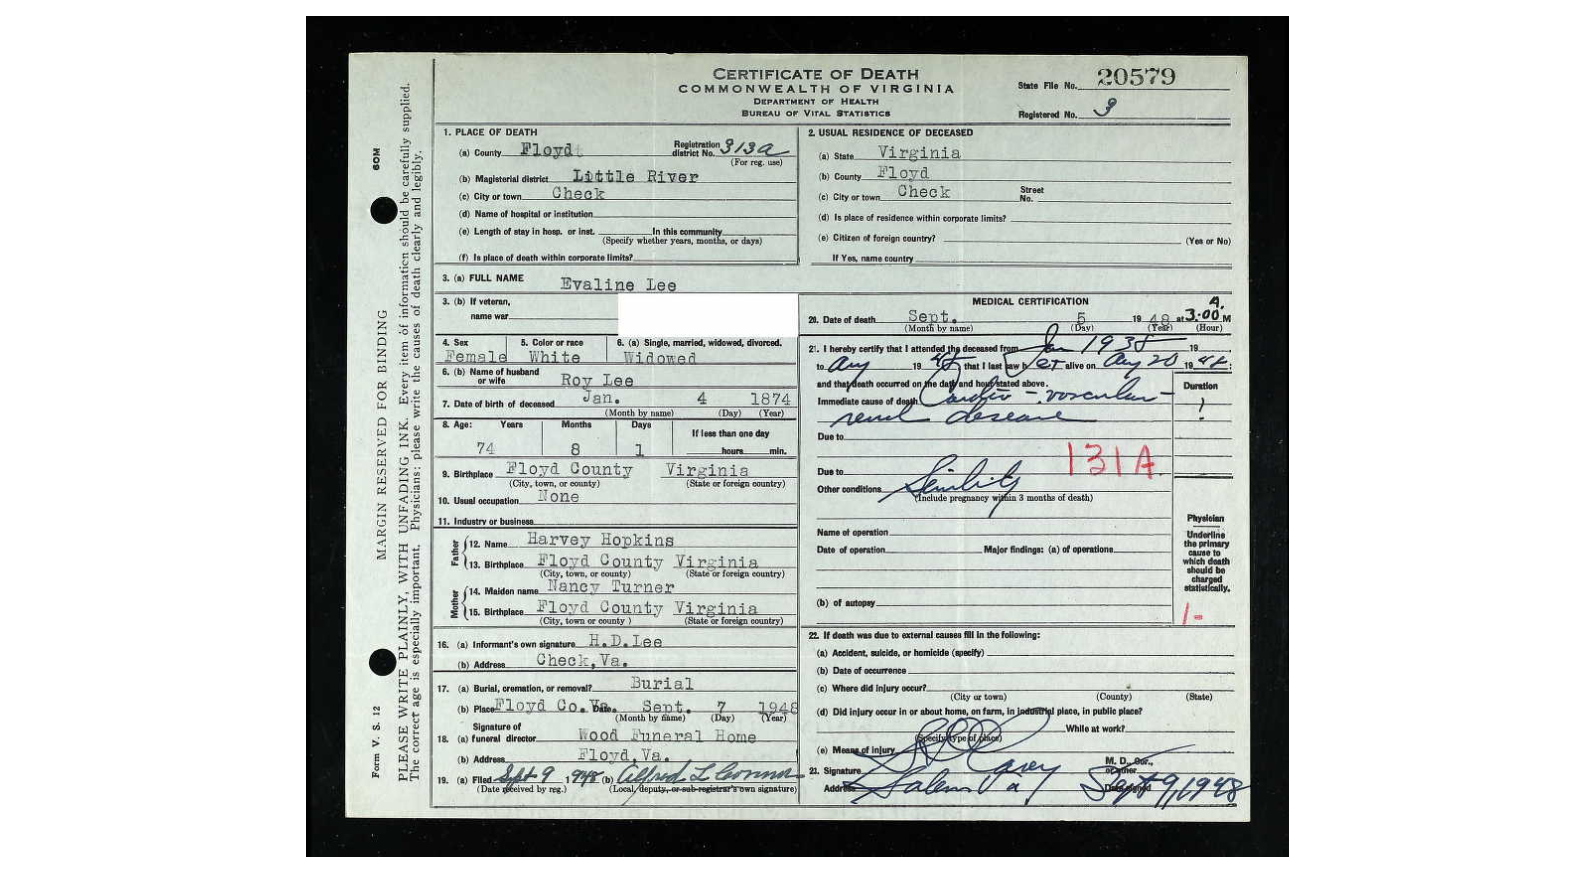 CERTIFICATE OF DEATH
COMMONWEALTH OF VIRGINIA
DEPARTMENT OF HEALTH
BUREAU OF VITAL STATISTICS
State File No. 20579
Registered No. 3
60M
MARGIN RESERVED FOR BINDING
Form V. S. 12
PLEASE WRITE PLAINLY, WITH UNFADING INK. Every item of information should be carefully supplied.
The correct age is especially important. Physicians: please write the causes of death clearly and legibly.
1. PLACE OF DEATH
(a) County Floyd Registration district No. 313a
(For reg. use)
(b) Magisterial district Little River
(c) City or town Check
(d) Name of hospital or institution
(e) Length of stay in hosp. or inst. In this community
(Specify whether years, months, or days)
(f) Is place of death within corporate limits?
2. USUAL RESIDENCE OF DECEASED
(a) State Virginia
(b) County Floyd
(c) City or town Check Street No.
(d) Is place of residence within corporate limits?
(e) Citizen of foreign country? (Yes or No)
If Yes, name country
3. (a) FULL NAME Evaline Lee
3. (b) If veteran,
name war
4. Sex 5. Color or race 6. (a) Single, married, widowed, divorced.
Female White Widowed
6. (b) Name of husband or wife Roy Lee
7. Date of birth of deceased Jan. 4 1874
(Month by name) (Day) (Year)
8. Age: Years Months Days If less than one day
74 8 1 hours min.
9. Birthplace Floyd County Virginia
(City, town, or county) (State or foreign country)
10. Usual occupation None
11. Industry or business
Father
12. Name Harvey Hopkins
13. Birthplace Floyd County Virginia
(City, town, or county) (State or foreign country)
Mother
14. Maiden name Nancy Turner
15. Birthplace Floyd County Virginia
(City, town or county ) (State or foreign country)
16. (a) Informant's own signature H.D.Lee
(b) Address Check,Va.
17. (a) Burial, cremation, or removal? Burial
(b) Place Floyd Co.Va. Date Sept. 7 1948
(Month by name) (Day) (Year)
Signature of
18. (a) funeral director Wood Funeral Home
(b) Address Floyd,Va.
19. (a) Filed Sept 9 1948 (b) Alfred L Connor
(Date received by reg.) (Local, deputy, or sub-registrar's own signature)
MEDICAL CERTIFICATION
20. Date of death Sept. 5 1948 at 3:00 A. M
(Month by name) (Day) (Year) (Hour)
21. I hereby certify that I attended the deceased from Jan 1938 19
to Aug 1948 that I last saw her alive on Aug 20 1948;
and that death occurred on the date and hour stated above. Duration
Immediate cause of death Cardio-vascular- ?
renal disease
Due to
Due to 131A
Other conditions Senility
(Include pregnancy within 3 months of death)
Name of operation
Date of operation Major findings: (a) of operations
(b) of autopsy
Physician
Underline
the primary
cause to
which death
should be
charged
statistically.
1-
22. If death was due to external causes fill in the following:
(a) Accident, suicide, or homicide (specify)
(b) Date of occurrence
(c) Where did injury occur?
(City or town) (County) (State)
(d) Did injury occur in or about home, on farm, in industrial place, in public place?
While at work?
(Specify type of place)
(e) Means of injury
23. Signature M. D., Cor.,
or other
Address Salem Va Date signed Sept 9, 1948